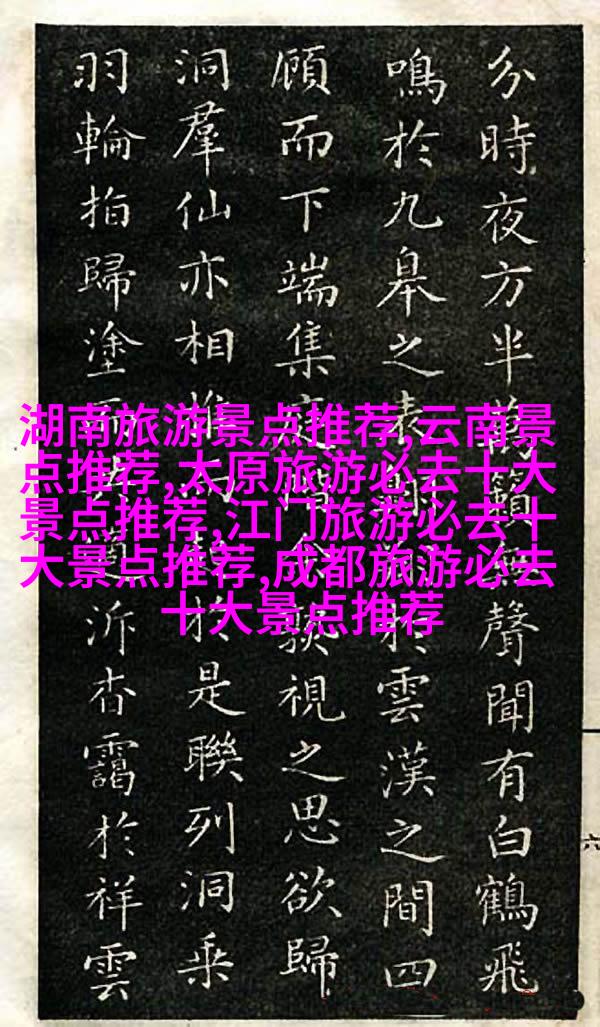 分時夜方半萬籟聲聞有白鶴飛
鳴於九皋之表翔於雲漢之間四
顧而下端集視之思欲歸
洞羣仙亦相推於是聯列洞乘
羽輪拍歸塗而泝杳靄於祥雲
湖南旅游景点推荐,云南景
点推荐,太原旅游必去十大
景点推荐,江门旅游必去十
大景点推荐,成都旅游必去
十大景点推荐
六